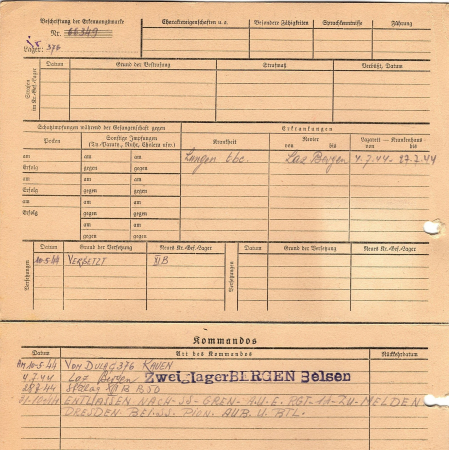 Beschriftung der Erkennungsmarke
Nr. 66349
Lager: 376
Charaktereigenschaften u. a.
Besondere Fähigkeiten
Sprachkenntnisse
Führung
Strafen im Kr.-Gef.-Lager
Datum
Grund der Bestrafung
Strafmaß
Verbüßt, Datum
Schutzimpfungen während der Gefangenschaft gegen
Erkrankungen
Pocken
Sonstige Impfungen
(Ty.-Paratyt., Ruhr, Cholera usw.)
Krankheit
Revier
von bis
Lazarett — Krankenhaus
von bis
am am am
Lungen tbc. Laz Bergen 4.7.44. 27.7.44
Erfolg gegen gegen
am am am
Erfolg gegen gegen
am am am
Erfolg gegen gegen
am am
gegen gegen
Versetzungen
Datum
Grund der Versetzung
Neues Kr.-Gef.-Lager
Versetzungen
Datum
Grund der Versetzung
Neues Kr.-Gef.-Lager
10.5.44 VERSETZT XI B
Kommandos
Datum
Art des Kommandos
Rückkehrdatum
Am 10.5.44 VOM DULAG 376 KAUEN
4.7.44 Laz Bergen Zweiglager BERGEN Belsen
44 Stalag XI B
ENTLASSEN NACH SS-GREN-A.U.E. RGT-1A-ZU-MELDEN
DRESDEN BEI SS PION. AUB. U. BTL.